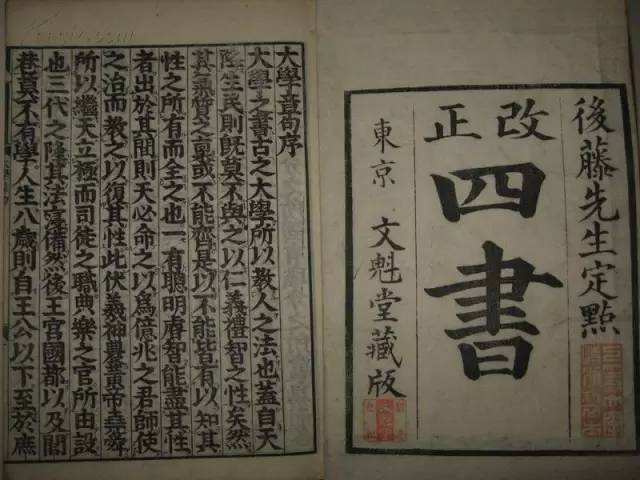 改正
後藤先生定點
四書
東京 文魁堂藏版
大學章句序
大學之書古之大學所以教人之法也蓋自天
降生民則既莫不與之以仁義禮智之性矣然
其氣質之稟或不能齊是以不能皆有以知其
性之所有而全之也一有聰明睿智能盡其性
者出於其閒則天必命之以爲億兆之君師使
之治而教之以復其性此伏羲神農黃帝堯舜
所以繼天立極而司徒之職典樂之官所由設
也三代之隆其法寖備然後王宮國都以及閭
巷莫不有學人生八歲則自王公以下至於庶